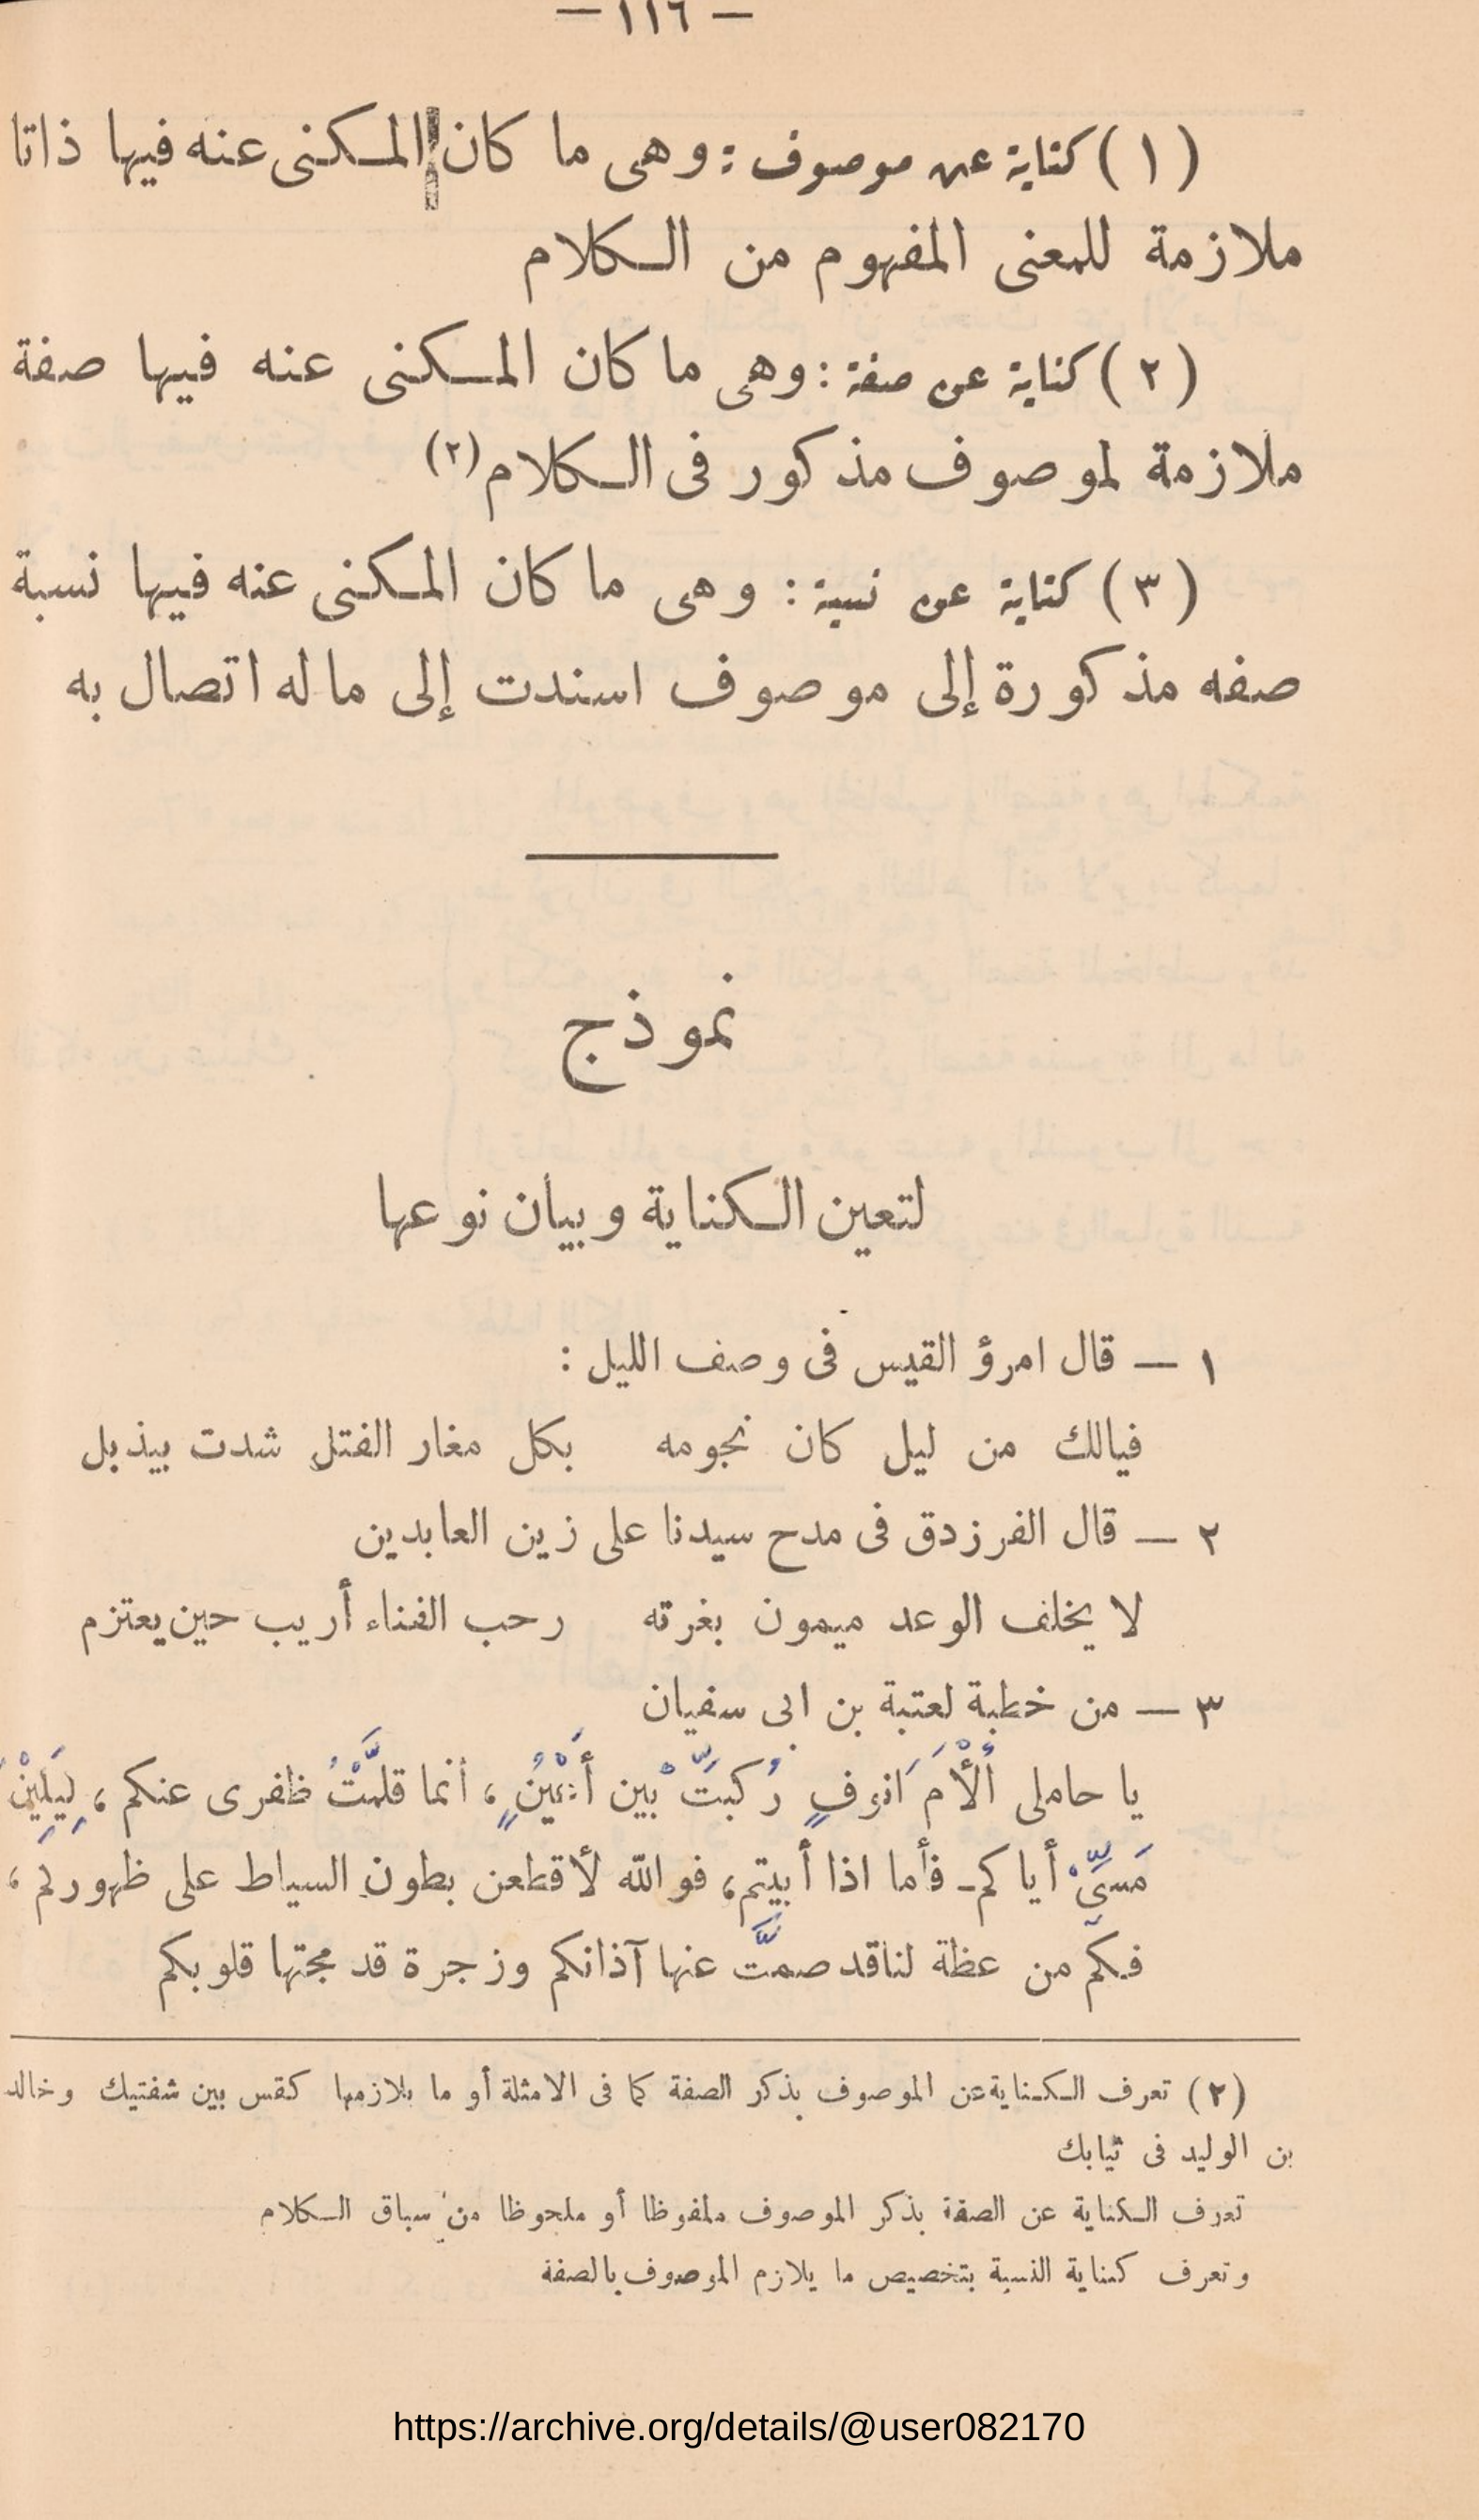 — ١١٦ —
(١) كناية عن موصوف : وهى ما كان المكنى عنه فيها ذاتا
ملازمة للمعنى المفهوم من الكلام
(٢) كناية عن صفة : وهى ما كان المكنى عنه فيها صفة
ملازمة لموصوف مذكور فى الكلام (٢)
(٣) كناية عن نسبة : وهى ما كان المكنى عنه فيها نسبة
صفه مذكورة إلى موصوف اسندت إلى ماله اتصال به
نموذج
لتعين الكناية وبيان نوعها
١ — قال امرؤ القيس فى وصف الليل :
فيالك من ليل كان نجومه بكل مغار الفتل شدت بيذبل
٢ — قال الفرزدق فى مدح سيدنا على زين العابدين
لا يخلف الوعد ميمون بغرته رحب الفناء أريب حين يعتزم
٣ — من خطبة لعتبة بن ابى سفيان
يا حاملى أَلْأَمَ انوفٍ رُكبتَّ بين أَعْيُنٍ ، أنما قلمَّتْ ظفرى عنكم ، لِيَلِيْنَ
مَسىِّ أياكم ـ فأما اذا أبيتم ، فوالله لأقطعن بطون السياط على ظهوركم ،
فكم من عظة لنا قد صمَّت عنها آذانكم وزجرة قد مجتها قلوبكم
(٢) تعرف الكناية عن الموصوف بذكر الصفة كما فى الامثلة أو ما يلازمها كقس بين شفتيك وخالد
بن الوليد فى ثيابك
تعرف الكناية عن الصفة بذكر الموصوف ملفوظا أو ملحوظا من سياق الكلام
وتعرف كناية النسبة بتخصيص ما يلازم الموصوف بالصفة
https://archive.org/details/@user082170